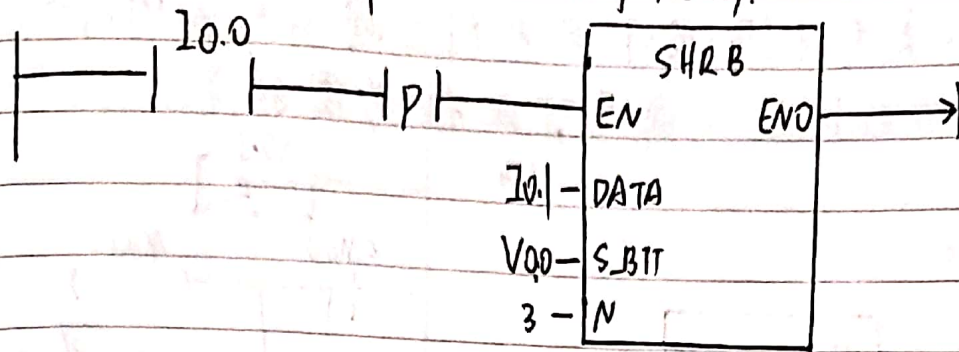 I0.0
SHRB
P
EN ENO
I0.1 DATA
V0.0 S_BIT
3 N